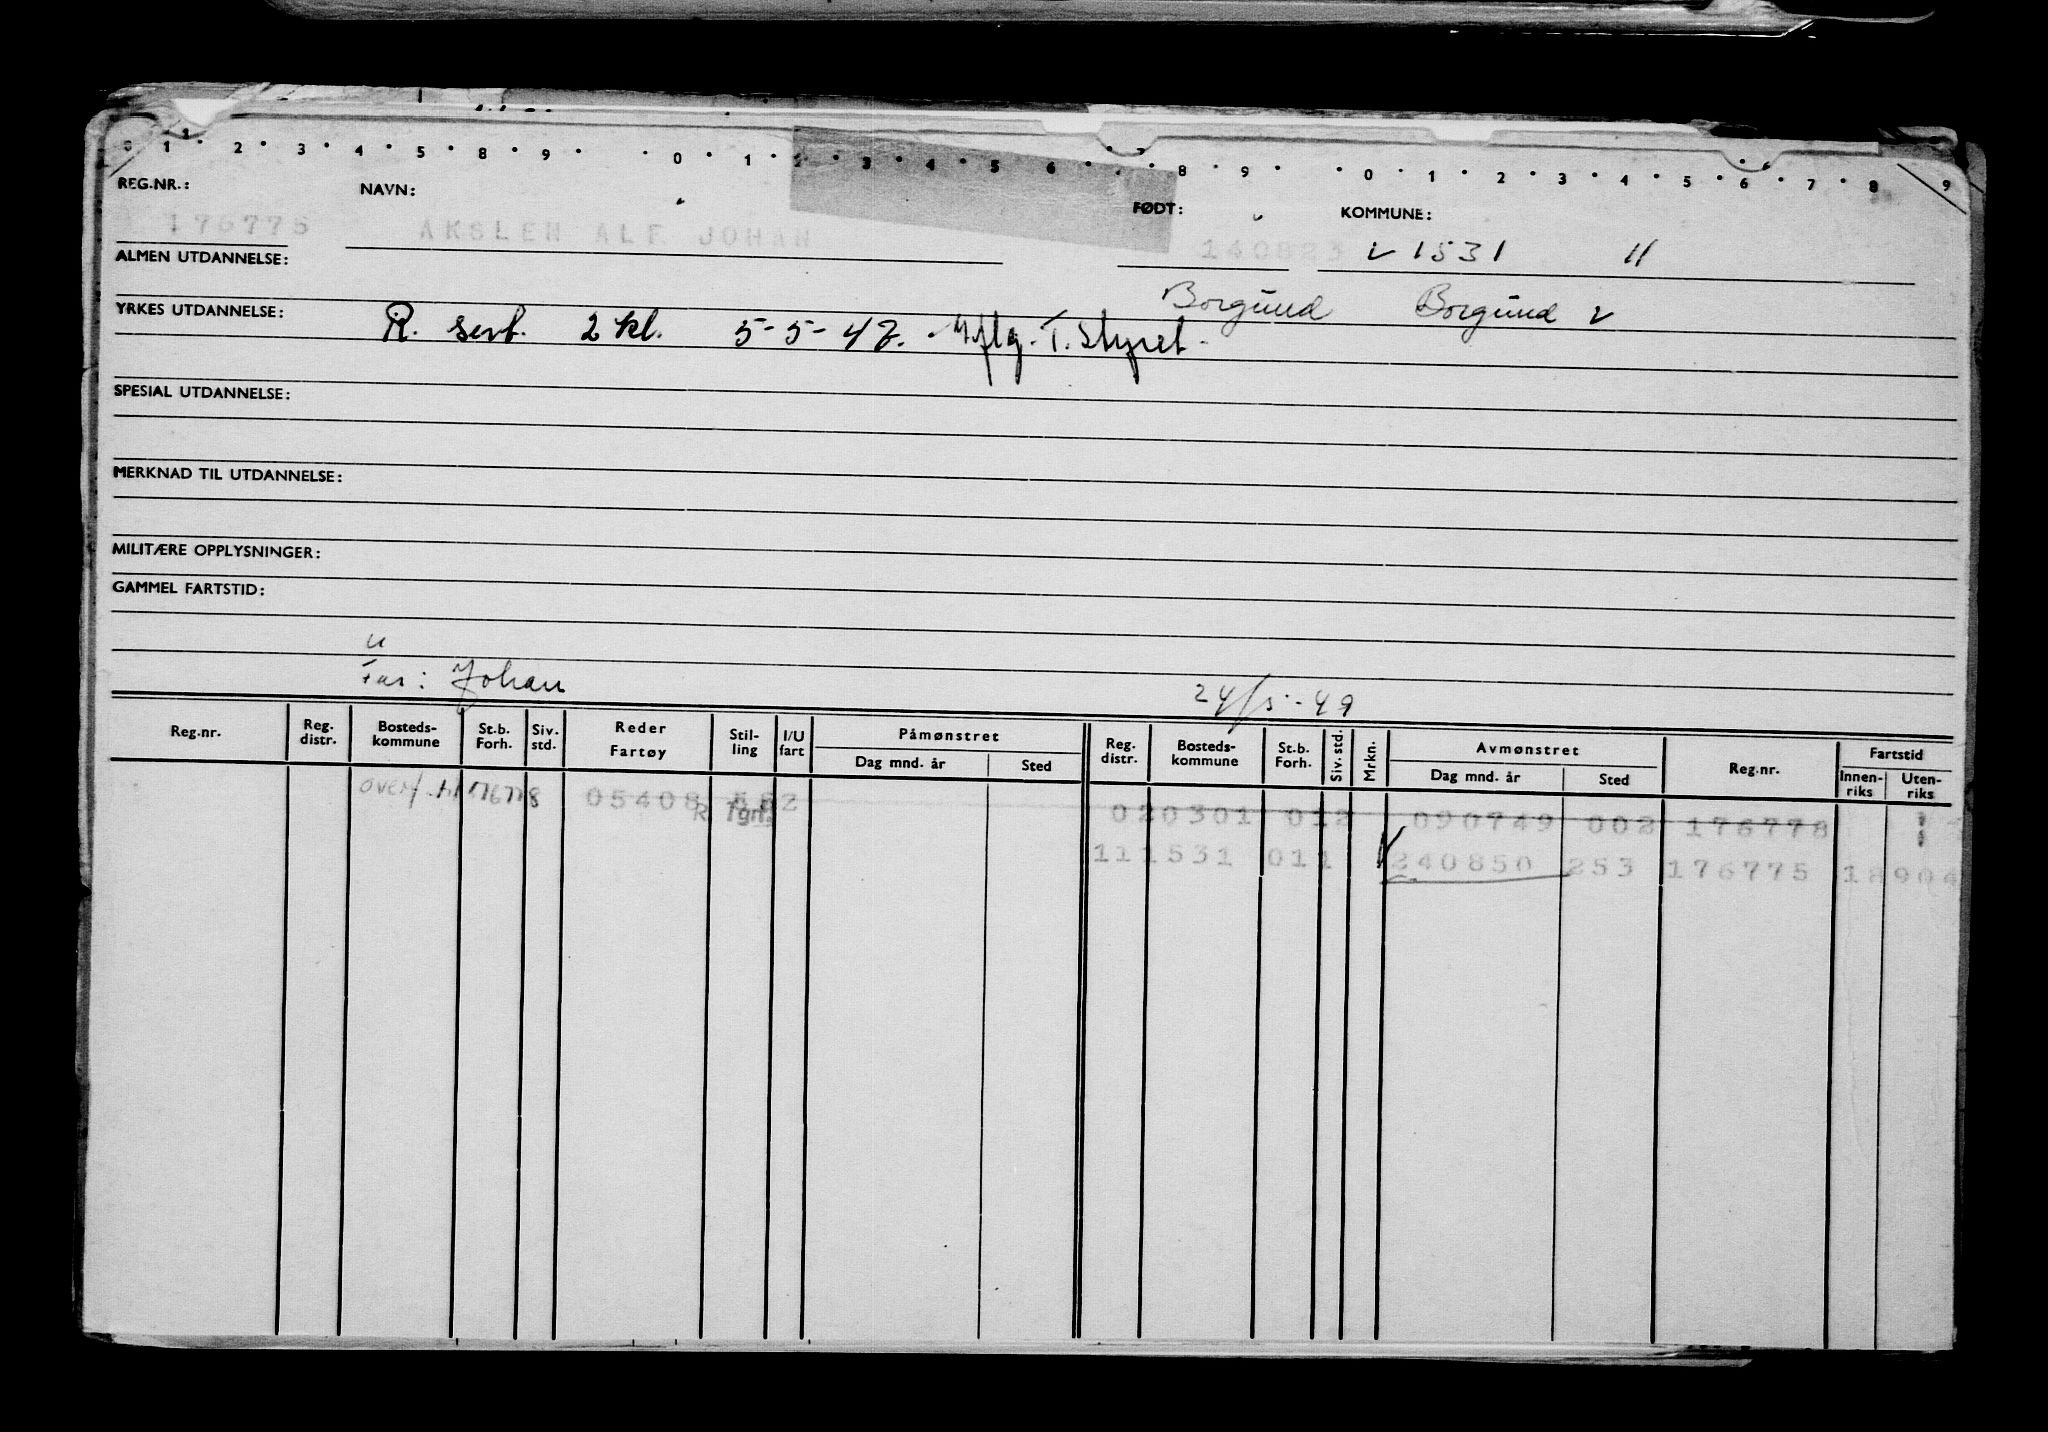 0 1 2 3 4 5 8 9 0 1 2 3 4 5 6 7 8 9 0 1 2 3 4 5 6 7 8 9
REG.NR.: NAVN: FØDT: KOMMUNE:
176775 AKSLEN ALF JOHAN 140823 v 1531 11
ALMEN UTDANNELSE:
Borgund Borgund v
YRKES UTDANNELSE: R. sert. 2 kl. 5-5-47. T. Styret.
SPESIAL UTDANNELSE:
MERKNAD TIL UTDANNELSE:
MILITÆRE OPPLYSNINGER:
GAMMEL FARTSTID:
u
Far: Johan 24/5-49
Reg.nr. Reg. distr. Bosteds-kommune St.b. Forh. Siv. std. Reder Fartøy Stil-ling I/U fart Påmønstret Reg. distr. Bosteds-kommune St.b. Forh. Siv. std. Mrkn. Avmønstret Reg.nr. Fartstid
Dag mnd. år Sted Dag mnd. år Sted Innen-riks Uten-riks
overf. til 176778 05408 582 020301 012 090749 002 176778
R. Tgrf. 111531 011 240850 253 176775 18904